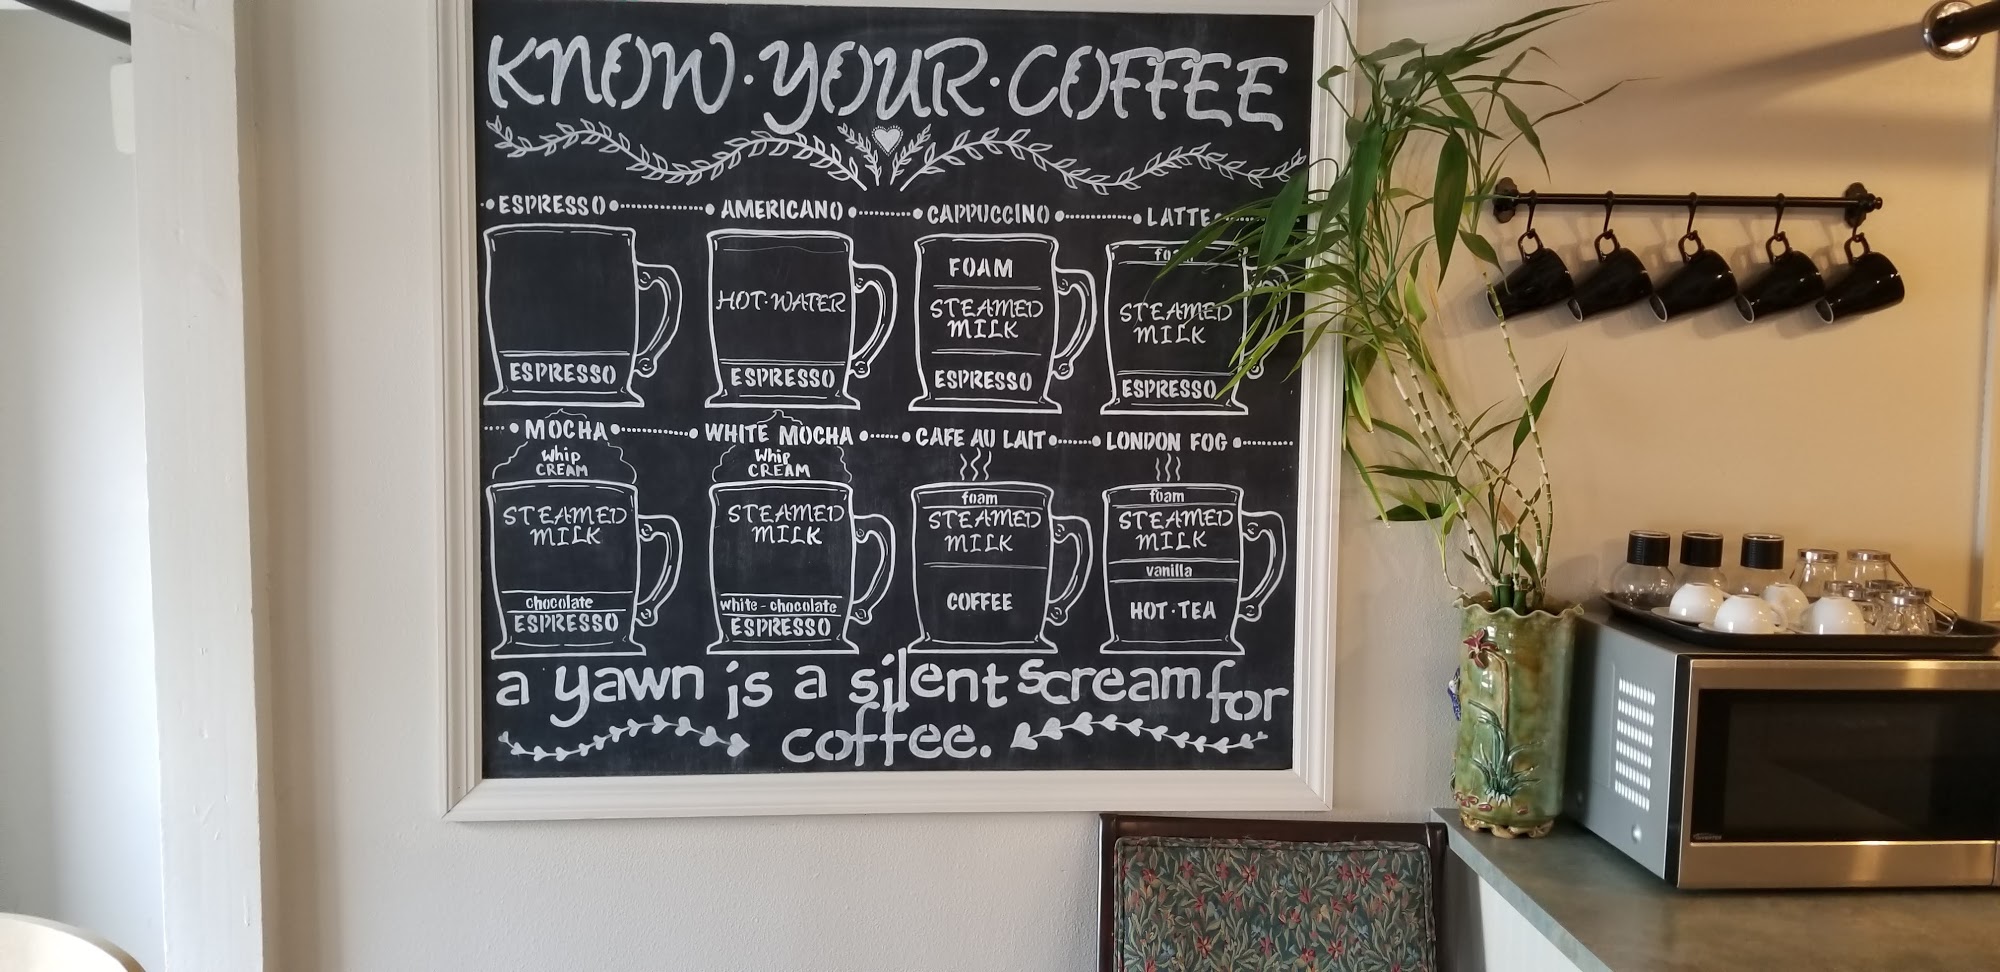 KNOW·YOUR·COFFEE
ESPRESSO
AMERICANO
CAPPUCCINO
LATTE
ESPRESSO
HOT·WATER
ESPRESSO
FOAM
STEAMED
MILK
ESPRESSO
STEAMED
MILK
ESPRESSO
MOCHA
WHITE MOCHA
CAFE AU LAIT
LONDON FOG
Whip
CREAM
STEAMED
MILK
chocolate
ESPRESSO
Whip
CREAM
STEAMED
MILK
white-chocolate
ESPRESSO
foam
STEAMED
MILK
COFFEE
foam
STEAMED
MILK
vanilla
HOT·TEA
a yawn is a silent scream for
coffee.